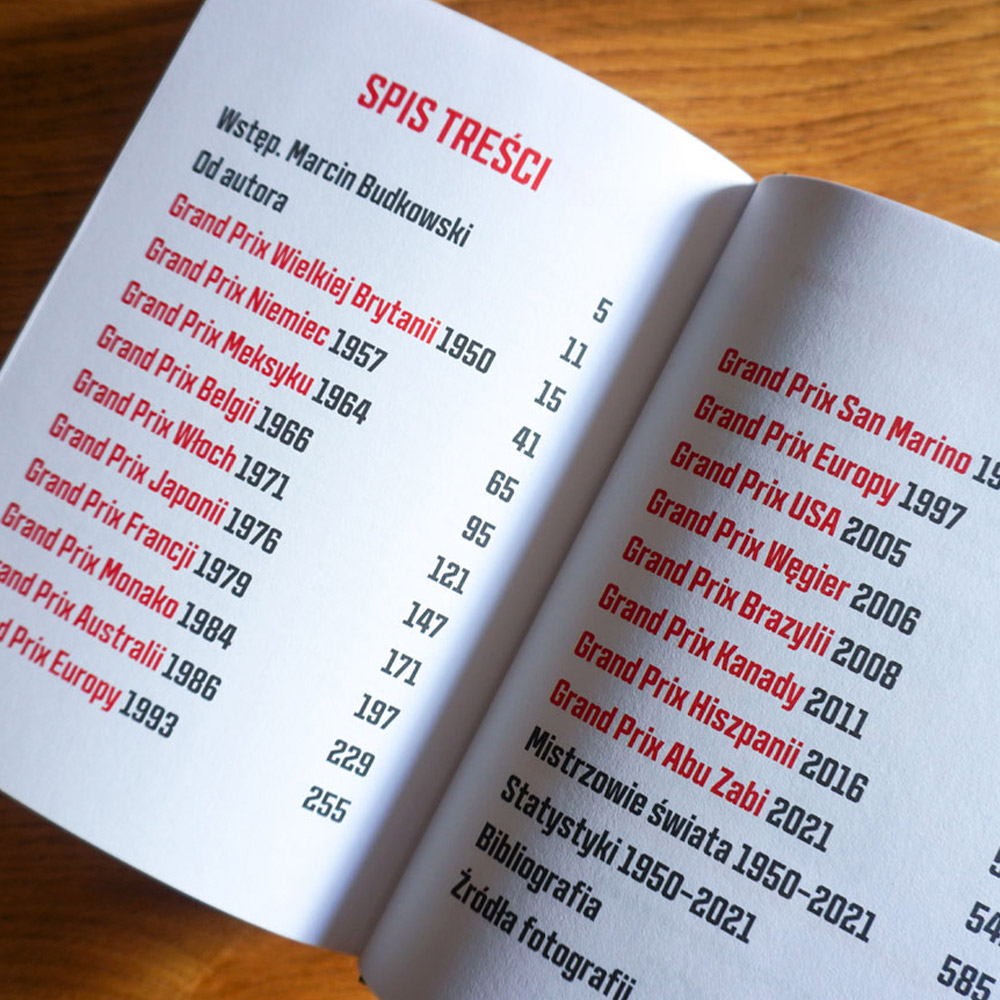 SPIS TREŚCI
Wstęp. Marcin Budkowski 5
Od autora 11
Grand Prix Wielkiej Brytanii 1950 15
Grand Prix Niemiec 1957 41
Grand Prix Meksyku 1964 65
Grand Prix Belgii 1966 95
Grand Prix Włoch 1971 121
Grand Prix Japonii 1976 147
Grand Prix Francji 1979 171
Grand Prix Monako 1984 197
Prix Australii 1986 229
Prix Europy 1993 255
Grand Prix San Marino
Grand Prix Europy 1997
Grand Prix USA 2005
Grand Prix Węgier 2006
Grand Prix Brazylii 2008
Grand Prix Kanady 2011
Grand Prix Hiszpanii 2016
Grand Prix Abu Zabi 2021
Mistrzowie świata 1950–2021 585
Statystyki 1950–2021
Bibliografia
Źródła fotografii